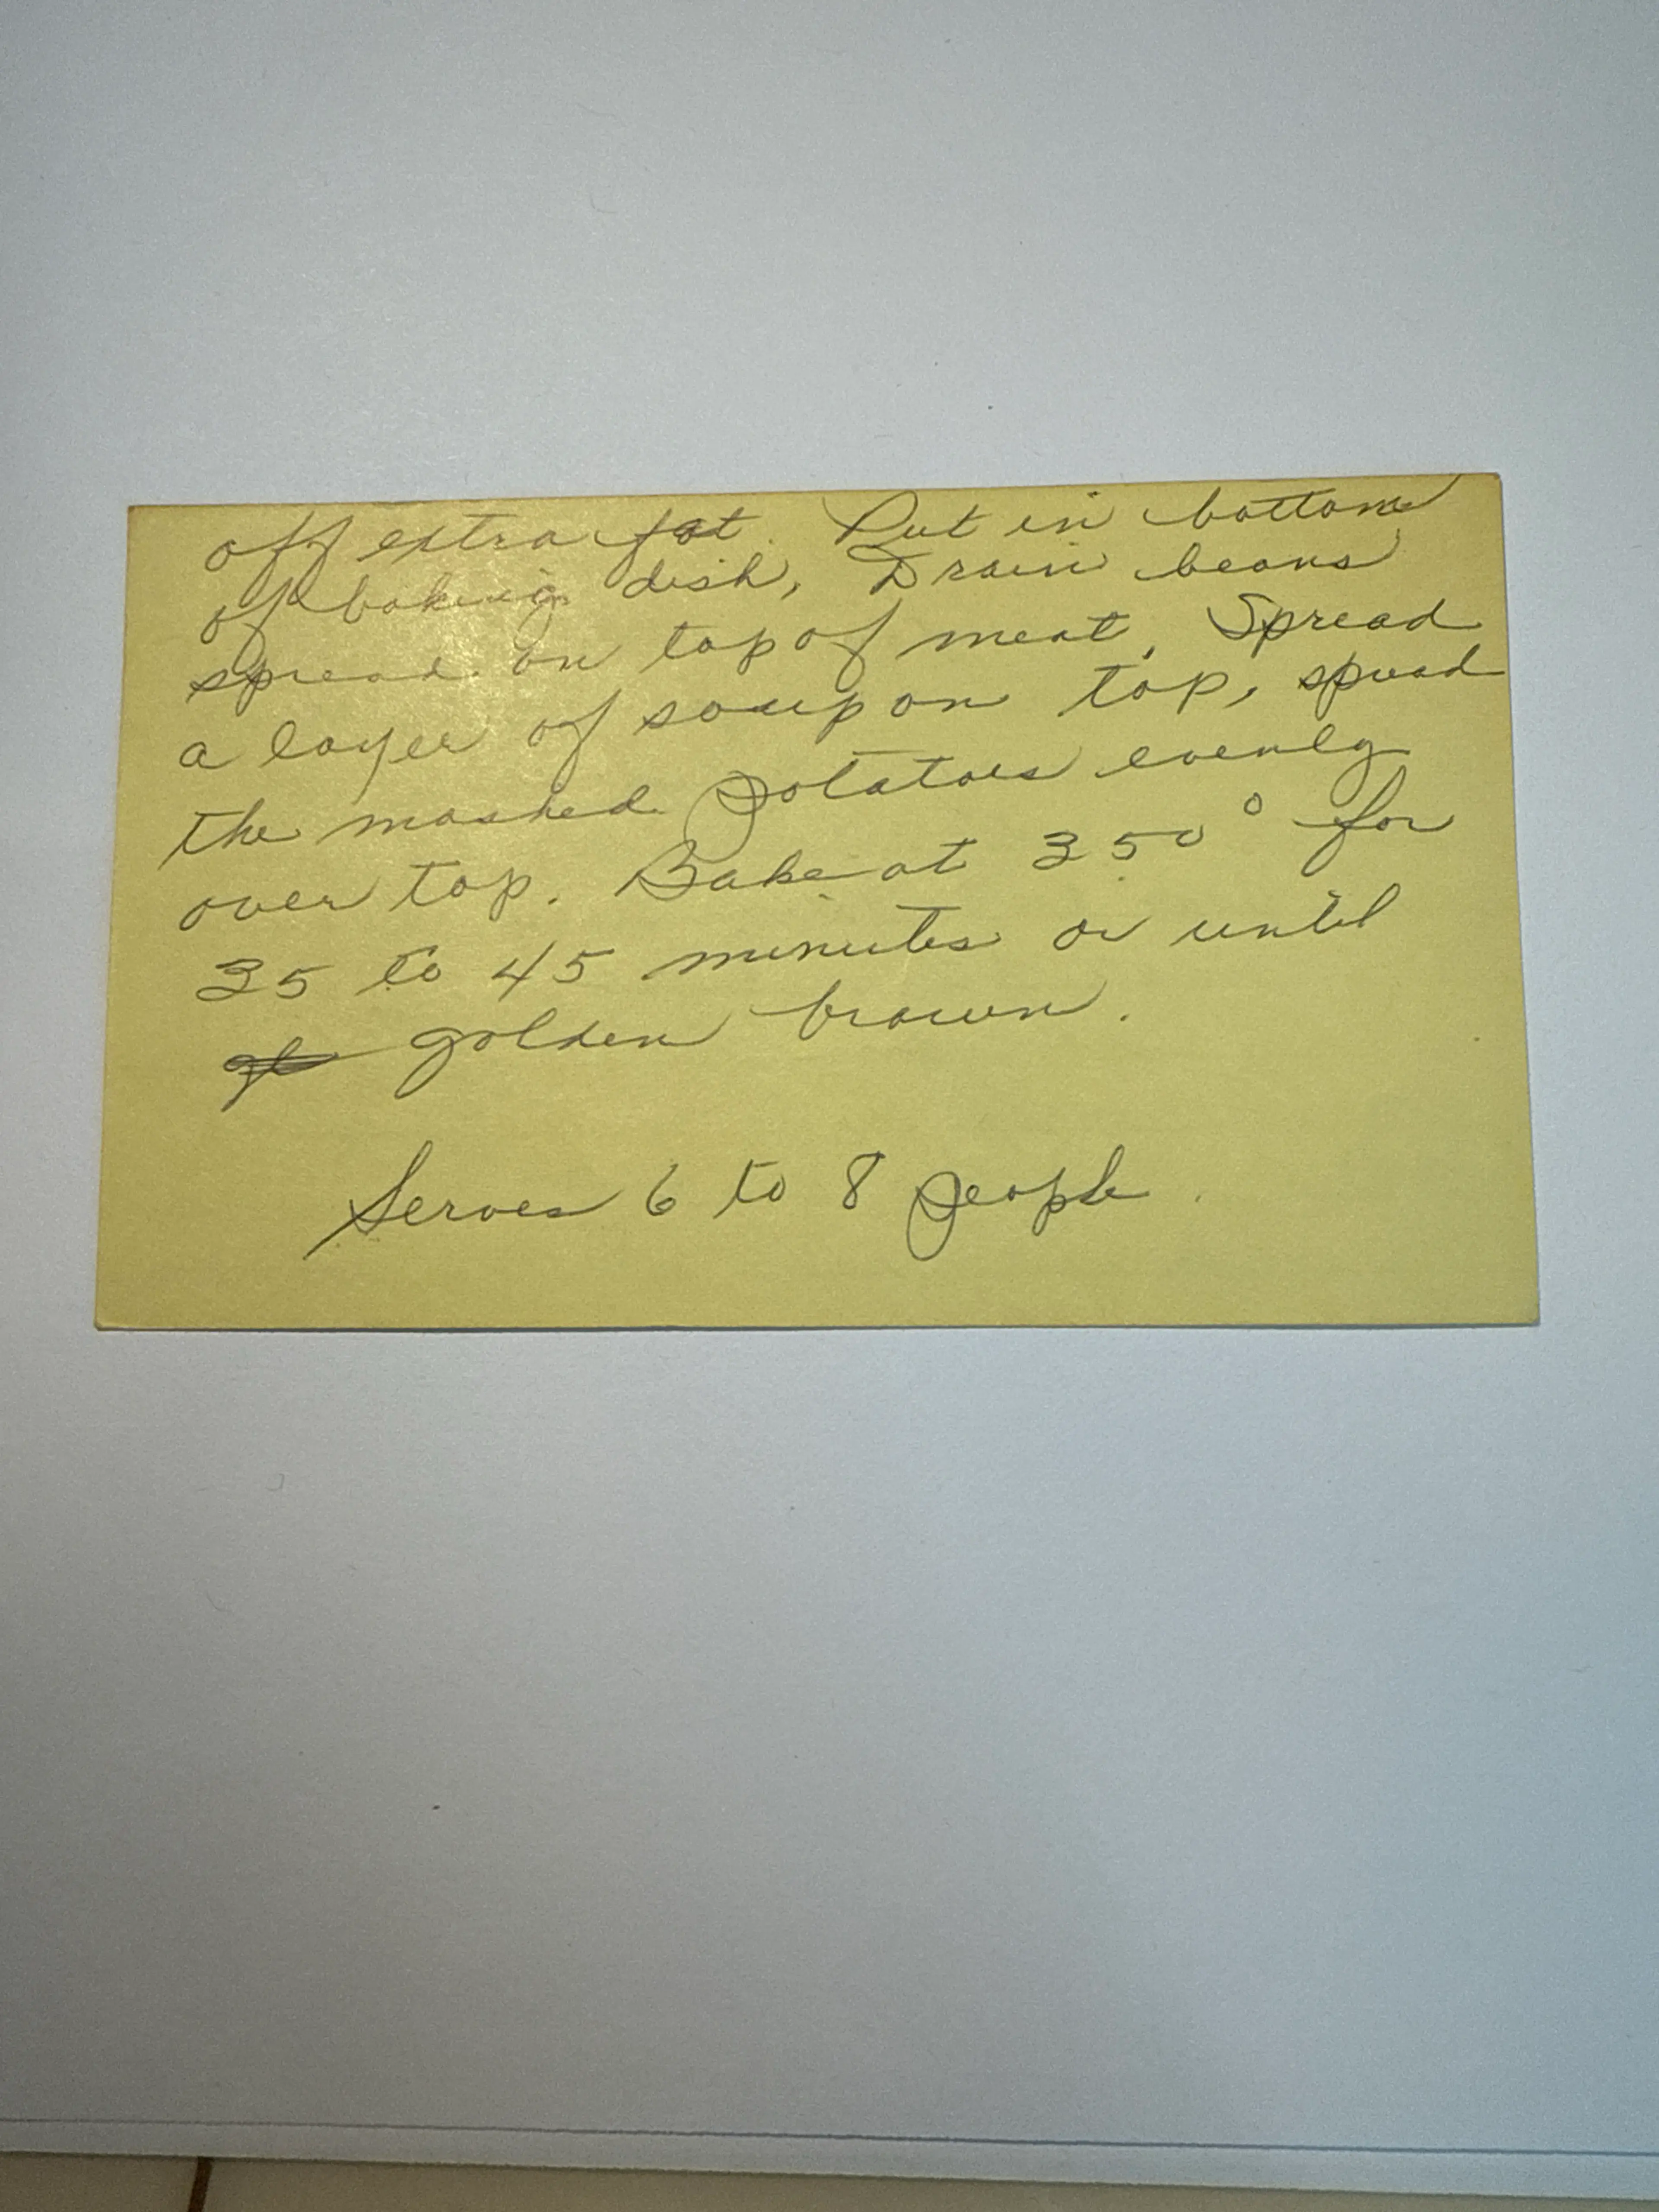 off extra fat. Put in bottom
of baking dish, Drain beans
spread on top of meat, Spread
a layer of soup on top, spread
the mashed potatoes evenly
over top. Bake at 350° for
35 to 45 minutes or until
golden brown.
Serves 6 to 8 people.